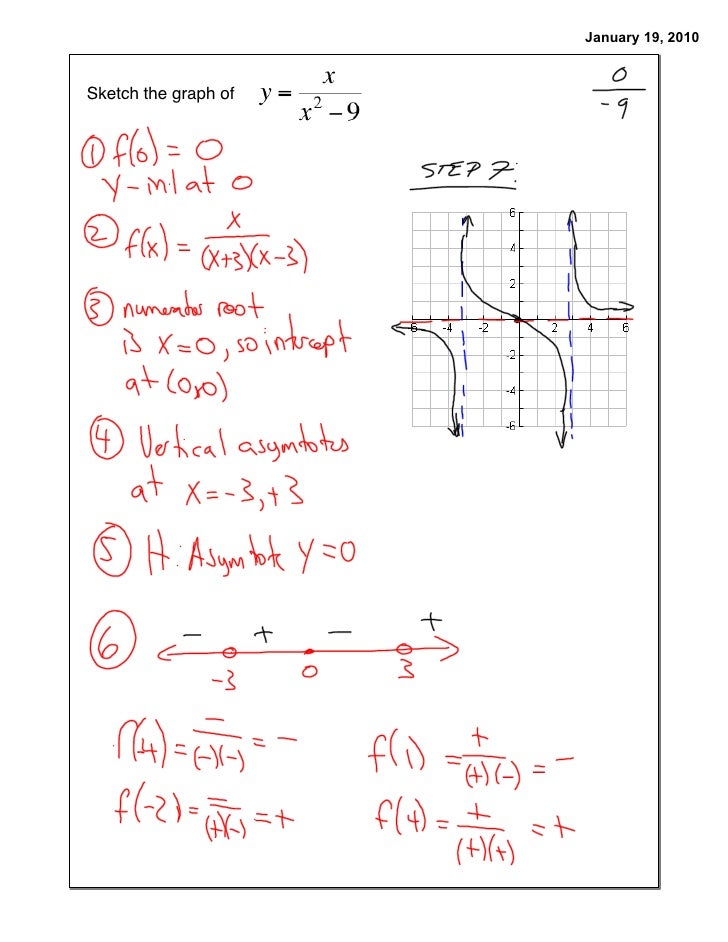 January 19, 2010
Sketch the graph of y = x / (x² – 9)
0 / -9
① f(0) = 0
y-int at 0
② f(x) = x / (x+3)(x-3)
③ numerator root
is x=0, so intercept
at (0,0)
④ Vertical asymtotes
at x=-3,+3
⑤ H. Asymtote y=0
STEP 7:
6
4
2
-6 -4 -2 2 4 6
-2
-4
-6
⑥ - + - +
-3 0 3
f(-4) = - / (-)(-) = -
f(-2) = - / (+)(-) = +
f(1) = + / (+)(-) = -
f(4) = + / (+)(+) = +